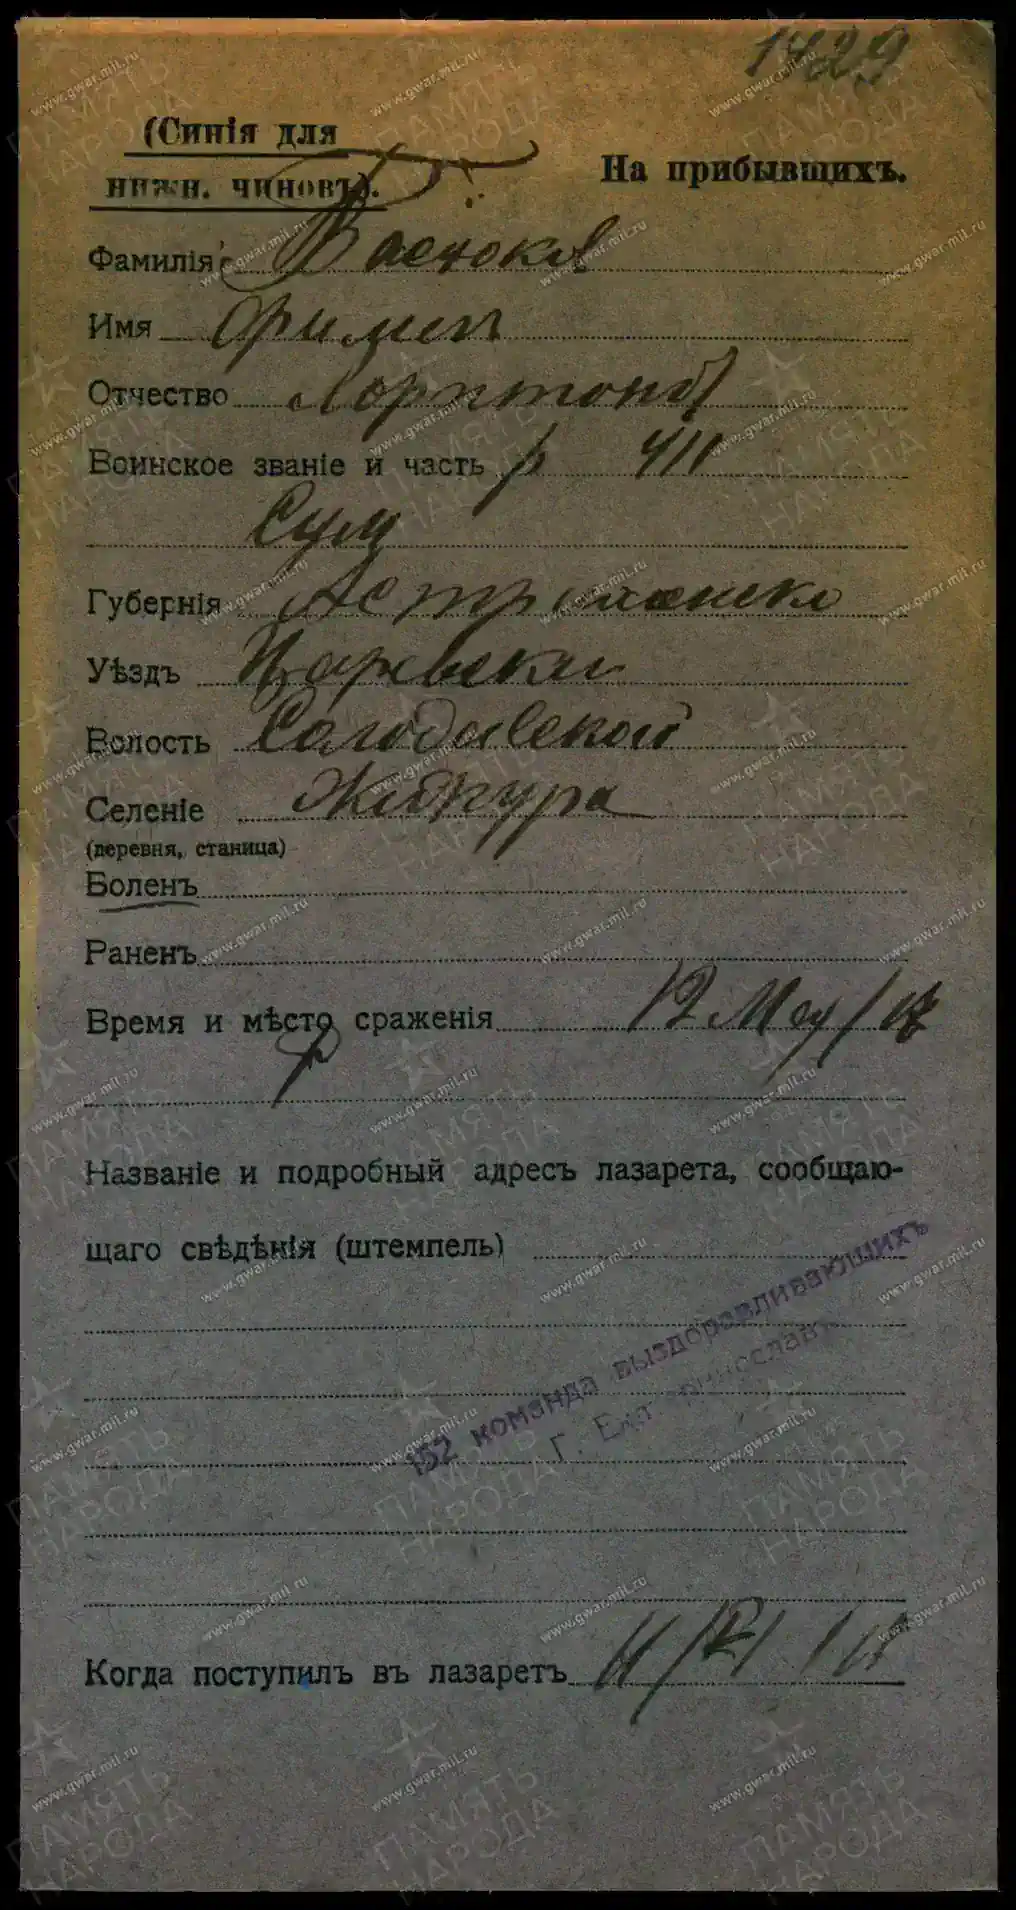 1429
(Синія для
нижн. чиновъ).
На прибывшихъ.
Фамилія
Имя
Отчество
Воинское званіе и часть р 411
Сум
Губернія Астраханско
Уѣздъ Царевскаг
Волость Солодовской
Селеніе Житкура
(деревня, станица)
Боленъ
Раненъ
Время и мѣсто сраженія 12 Мая/17
р
Названіе и подробный адресъ лазарета, сообщаю-
щаго свѣдѣнія (штемпель)
152 команда выздоравливающихъ
г. Екатеринославъ
Когда поступилъ въ лазаретъ
www.gwar.mil.ru
ПАМЯТЬ
НАРОДА